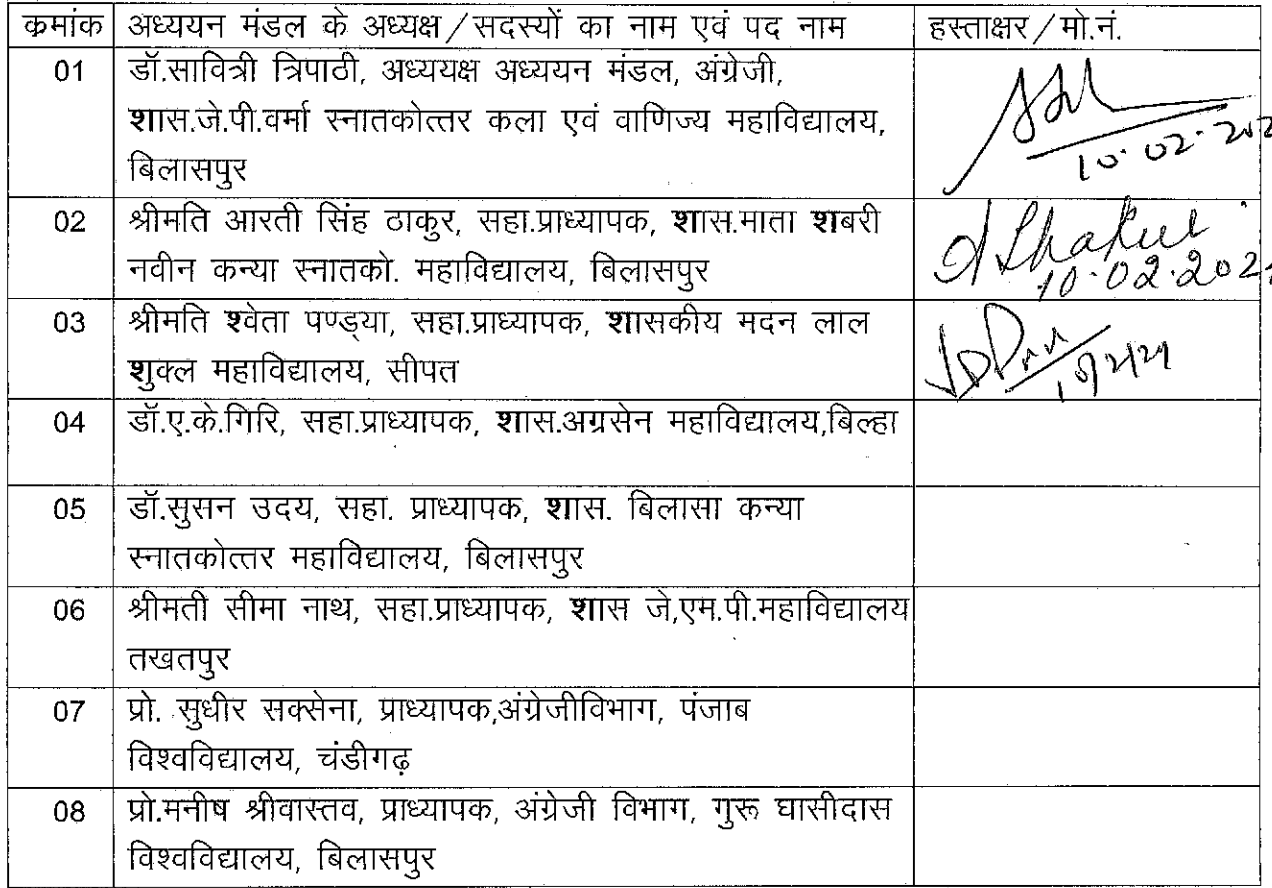 क्रमांक अध्ययन मंडल के अध्यक्ष/सदस्यों का नाम एवं पद नाम हस्ताक्षर/मो.नं.
01 डॉ.सावित्री त्रिपाठी, अध्ययक्ष अध्ययन मंडल, अंग्रेजी,
शास.जे.पी.वर्मा स्नातकोत्तर कला एवं वाणिज्य महाविद्यालय,
बिलासपुर
10.02.202
02 श्रीमति आरती सिंह ठाकुर, सहा.प्राध्यापक, शास.माता शबरी
नवीन कन्या स्नातको. महाविद्यालय, बिलासपुर
Thakur
10.02.202
03 श्रीमति श्वेता पण्ड्या, सहा.प्राध्यापक, शासकीय मदन लाल
शुक्ल महाविद्यालय, सीपत
10/2/21
04 डॉ.ए.के.गिरि, सहा.प्राध्यापक, शास.अग्रसेन महाविद्यालय,बिल्हा
05 डॉ.सुसन उदय, सहा. प्राध्यापक, शास. बिलासा कन्या
स्नातकोत्तर महाविद्यालय, बिलासपुर
06 श्रीमती सीमा नाथ, सहा.प्राध्यापक, शास जे,एम.पी.महाविद्यालय
तखतपुर
07 प्रो. सुधीर सक्सेना, प्राध्यापक,अंग्रेजीविभाग, पंजाब
विश्वविद्यालय, चंडीगढ़
08 प्रो.मनीष श्रीवास्तव, प्राध्यापक, अंग्रेजी विभाग, गुरू घासीदास
विश्वविद्यालय, बिलासपुर